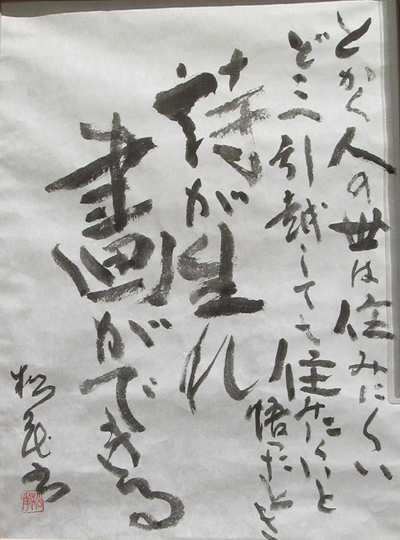 とかく人の世は住みにくい
どこへ引越しても住みにくいと
悟ったとき
詩が生れ
畫ができる